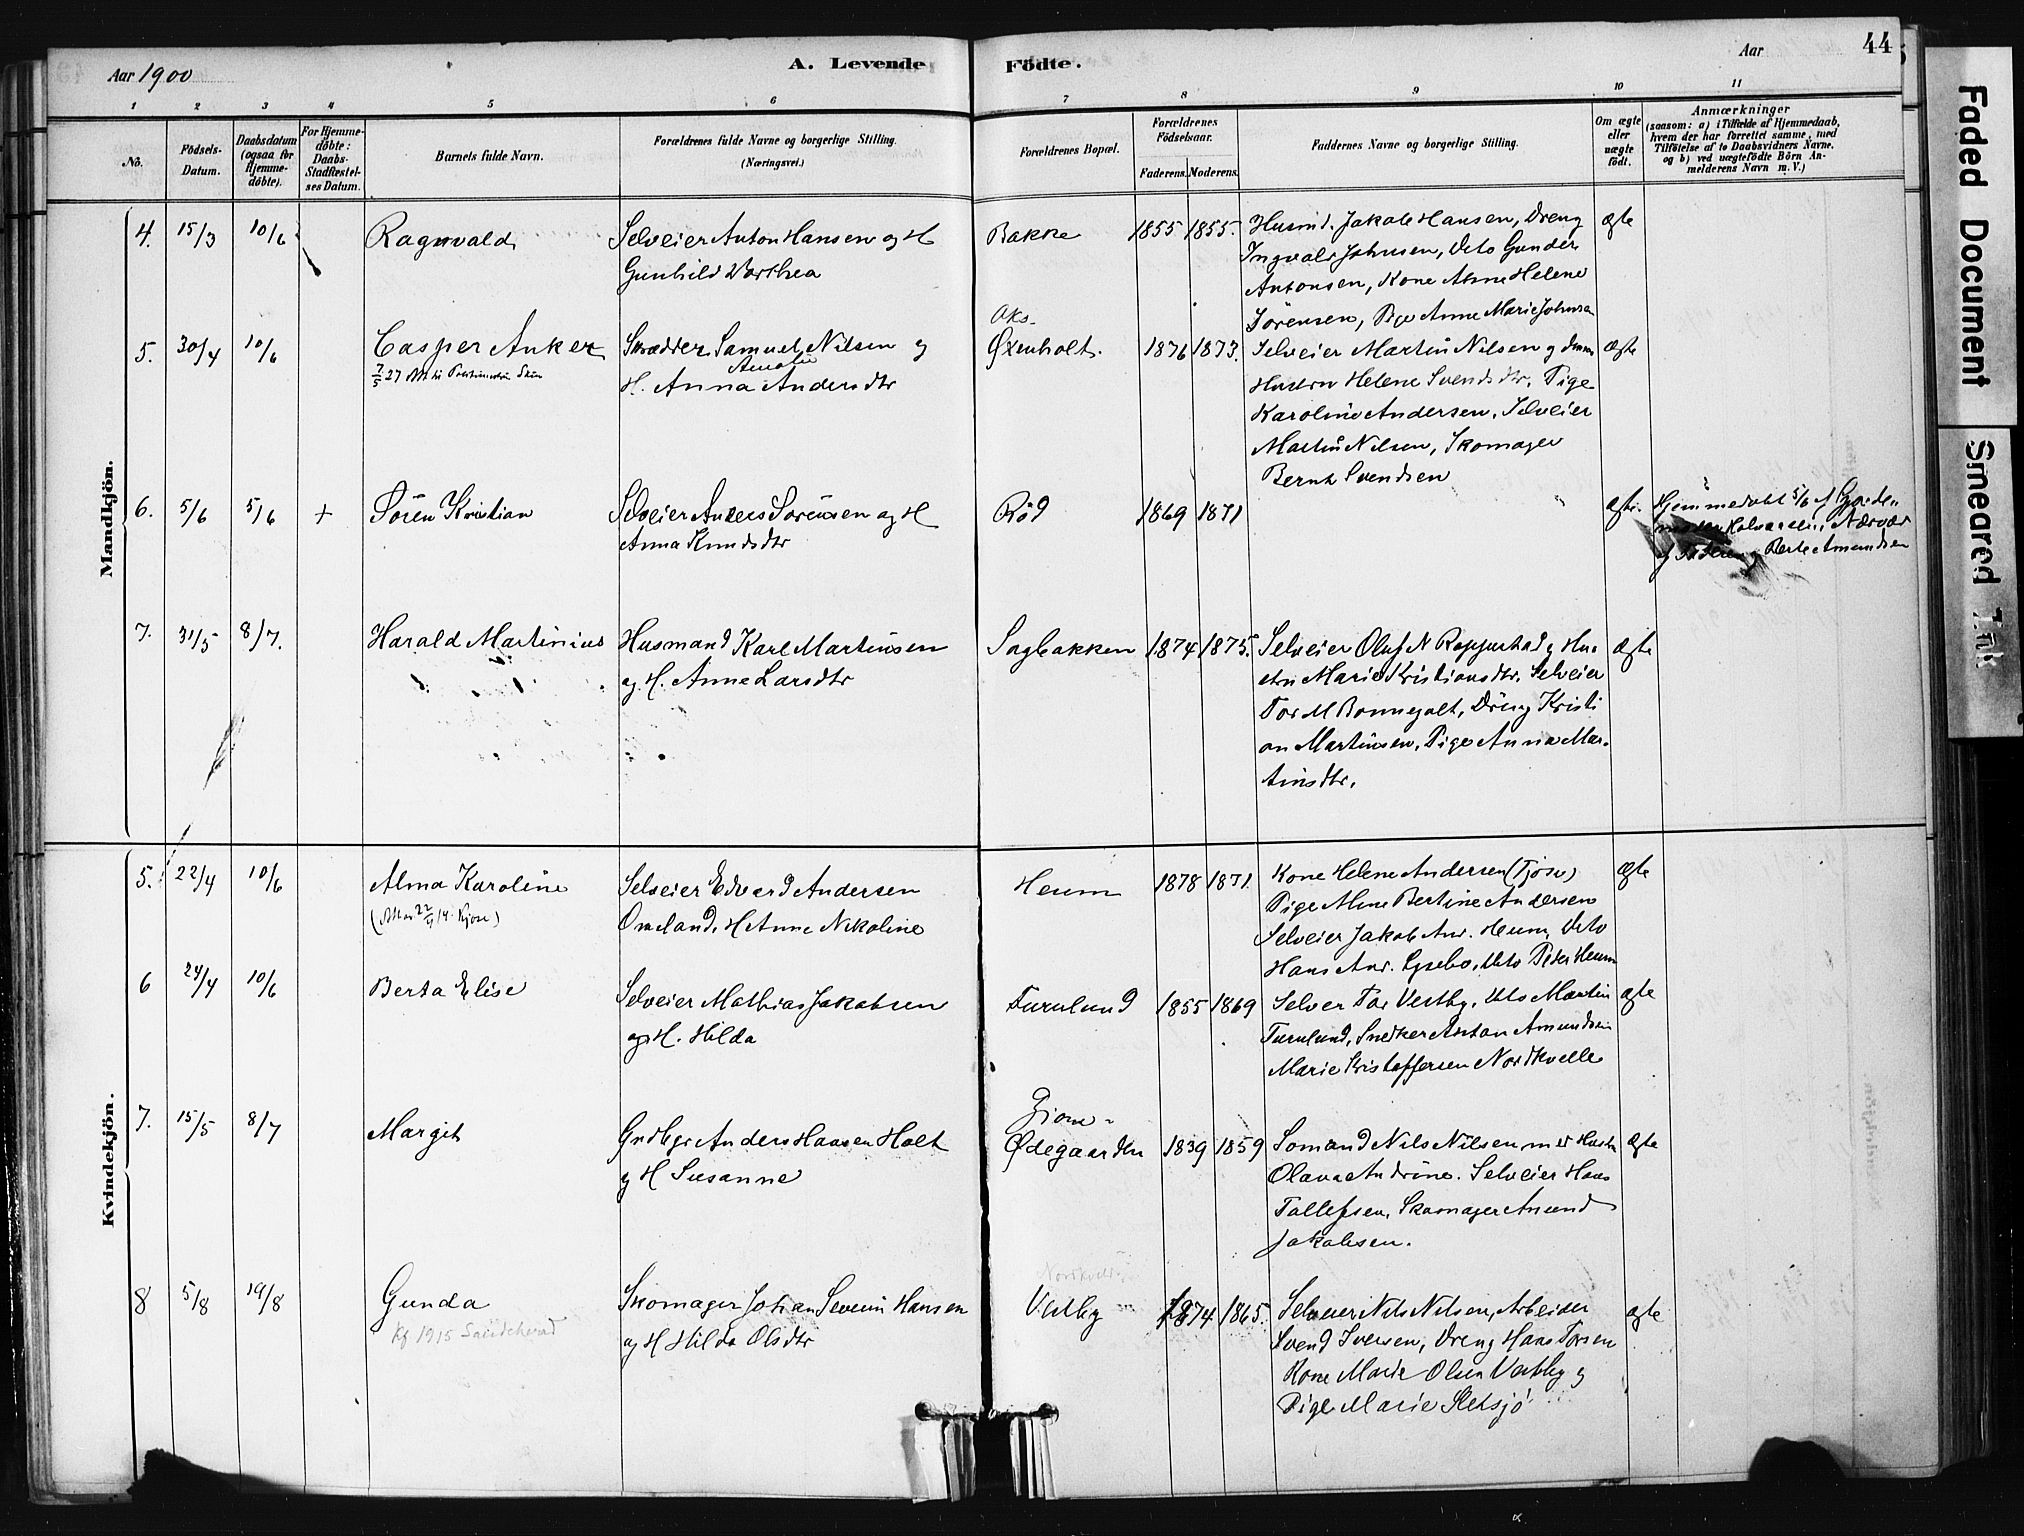 Aar 1900
A. Levende Födte.
Aar
44
1 2 3 4 5 6 7 8 9 10 11
No.
Födsels-Datum.
Daabsdatum (ogsaa for Hjemme-döbte).
For Hjemme-döbte: Daabs-Stadfæstel-ses Datum.
Barnets fulde Navn.
Forældrenes fulde Navne og borgerlige Stilling.
(Næringsvei.)
Forældrenes Bopæl.
Forældrenes Födselsaar.
Faderens. Moderens.
Faddernes Navne og borgerlige Stilling.
Om ægte eller uægte födt.
Anmærkninger
(saasom: a) i Tilfælde af Hjemmedaab,
hvem der har forrettet samme, med
Tilföielse af to Daabsvidners Navne,
og b) ved uægtefödte Börn An-
melderens Navn m. V.)
Mandkjön.
4. 15/3 10/6 Ragnvald
Selveier Anton Hansen og H
Gunhild Dorthea
Bakke 1855 1855.
Husmd. Jakob Hansen, Dreng
Ingvald Johnsen, Dito Gunder
Antonsen, Kone Anne Helene
Sörensen, Pige Anne Marie Johnsen
ægte
5. 30/4 10/6 Casper Anker
Skrædder Samuel Nilsen og
H. Anna Andersdtr
Øxenholt. 1876 1873.
Selveier Martin Nilsen og dennes
Hustru Helene Svendsdtr. Pige
Karoline Andersen, Selveier
Martin Nilsen, Skomager
Bernt Svendsen
ægte
6. 5/6 5/6 + Sören Kristian
Selveier Anders Sörensen og H
Anna Knudsdtr
Röd 1869 1871
ægte.
Hjemmedöbt 5/6 af
7. 31/5 8/7. Harald Martinius
Husmand Karl Martinsen
og H. Anne Larsdtr
Sagbakken 1874 1875.
Selveier Oluf N Roppestad og Hu-
stru Marie Kristiansdtr. Selveier
Tor M Bonnegolt, Dreng Kristi
an Martinsen, Pige Anna Mar-
tinsdtr.
ægte
Kvindekjön.
5. 22/4 10/6 Alma Karoline
Selveier Edvard Andersen
Omeland, H Anne Nikoline
Heum 1878 1871.
Kone Helene Andersen (Tjöse)
Pige Alma Bertine Andersen
Selveier Jakob And. Heum, Dito
Hans And. Lysebo, Dito Peder Heum
ægte
6 24/4 10/6 Berta Elise
Selveier Mathias Jakobsen
og H. Hilda
Furulund 1855 1869
Selveier Tor Vestby, Dito Martin
Furulund, Snedker Anton Amundsen
Marie Kristoffersen Nordkvelle
ægte
7. 15/5 8/7 Margit
Grdbgr Anders Hansen Holt
og H Susanne
Ødegaarden 1839 1859
Sömand Nils Nilsen med Hustru
Olava Andrine. Selveier Hans
Tollefsen, Skomager Amund
Jakobsen.
ægte
8 5/8 19/8 Gunda
Kf 1915 Sandeherad
Skomager Johan Severin Hansen
og H Hilda Olsdtr
Vestby 1874 1865.
Selveier Nils Nilsen, Arbeider
Svend Iversen, Dreng Hans Torsen
Kone Marie Olsen Vestby og
Pige Marie Stetsjö
ægte
Faded Document
Smeared Ink